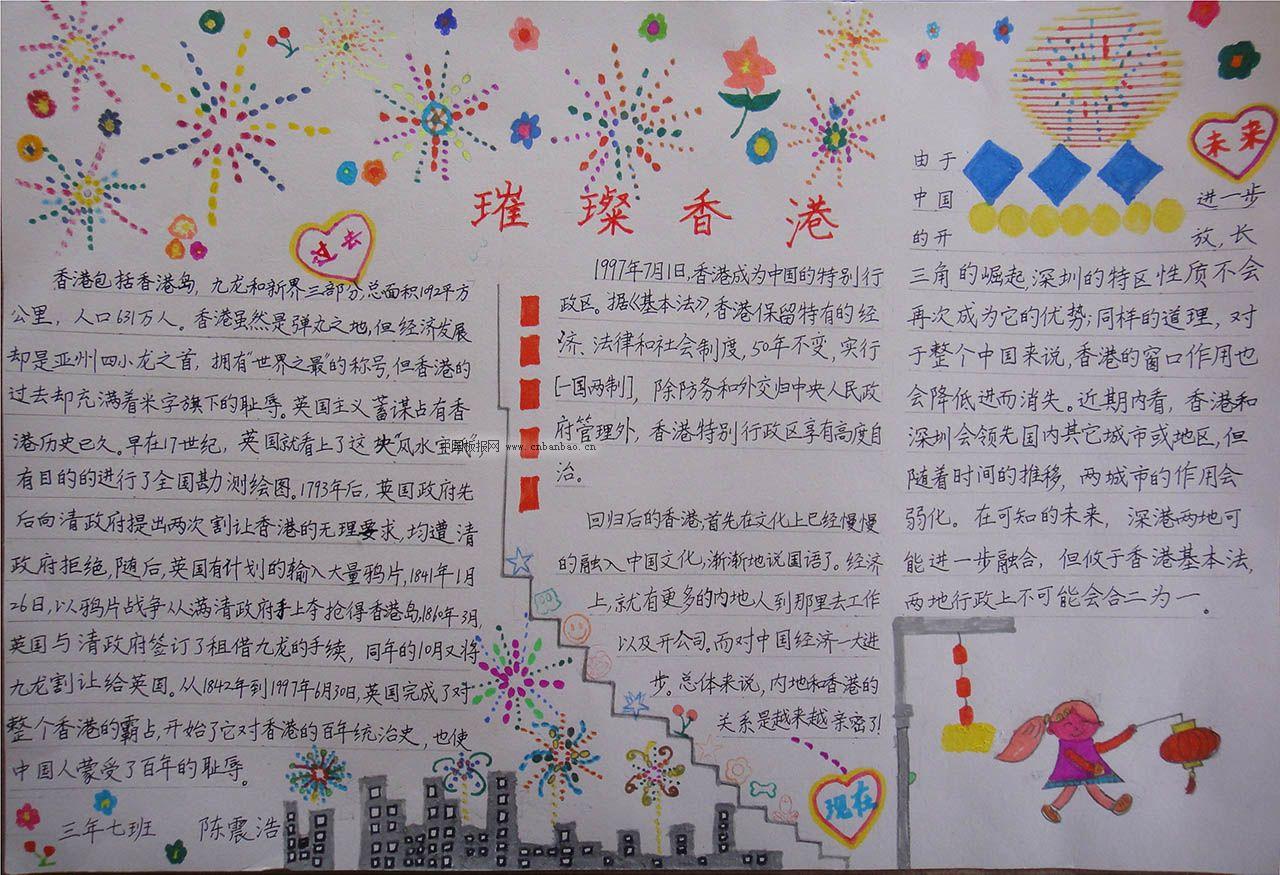 璀璨香港
过去
香港包括香港岛，九龙和新界三部分，总面积1092平方
公里，人口631万人。香港虽然是弹丸之地，但经济发展
却是亚州四小龙之首，拥有“世界之最”的称号，但香港的
过去却充满着米字旗下的耻辱。英国主义蓄谋占有香
港历史已久。早在17世纪，英国就看上了这块“风水宝地”，
有目的的进行了全国勘测绘图。1793年后，英国政府先
后向清政府提出两次割让香港的无理要求，均遭清
政府拒绝，随后，英国有计划的输入大量鸦片，1841年1月
26日，以鸦片战争从满清政府手上夺抢得香港岛，1860年3月，
英国与清政府签订了租借九龙的手续，同年的10月又将
九龙割让给英国。从1842年到1997年6月30日，英国完成了对
整个香港的霸占，开始了它对香港的百年统治史，也使
中国人蒙受了百年的耻辱。
三年七班 陈震浩
中国板报网
www.cnbanbao.cn
1997年7月1日，香港成为中国的特别行
政区。据《基本法》，香港保留特有的经
济、法律和社会制度，50年不变，实行
[一国两制]，除防务和外交归中央人民政
府管理外，香港特别行政区享有高度自
治。
回归后的香港，首先在文化上已经慢慢
的融入中国文化，渐渐地说国语了。经济
上，就有更多的内地人到那里去工作
以及开公司。而对中国经济一大进
步。总体来说，内地和香港的
关系是越来越亲密了!
现在
未来
由于
中国 进一步
的开 放，长
三角的崛起，深圳的特区性质不会
再次成为它的优势；同样的道理，对
于整个中国来说，香港的窗口作用也
会降低进而消失。近期内看，香港和
深圳会领先国内其它城市或地区，但
随着时间的推移，两城市的作用会
弱化。在可知的未来，深港两地可
能进一步融合，但攸于香港基本法，
两地行政上不可能会合二为一。